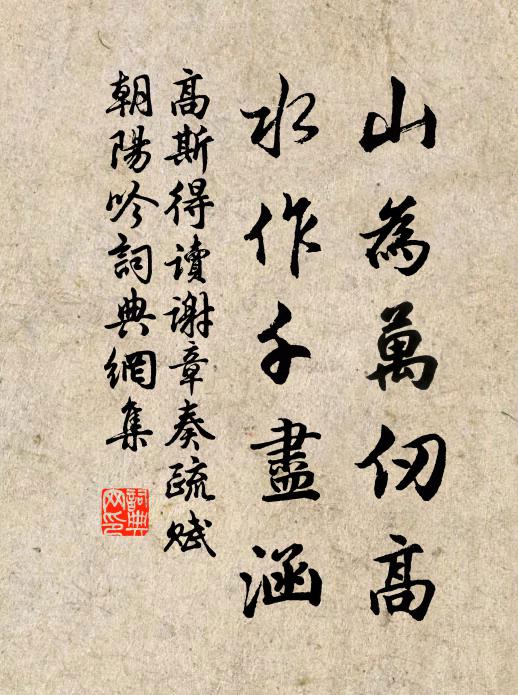 山為萬仞高
水作千盡涵
高斯得讀謝章奏疏賦
朝陽吟詞典網集
詞典
网印